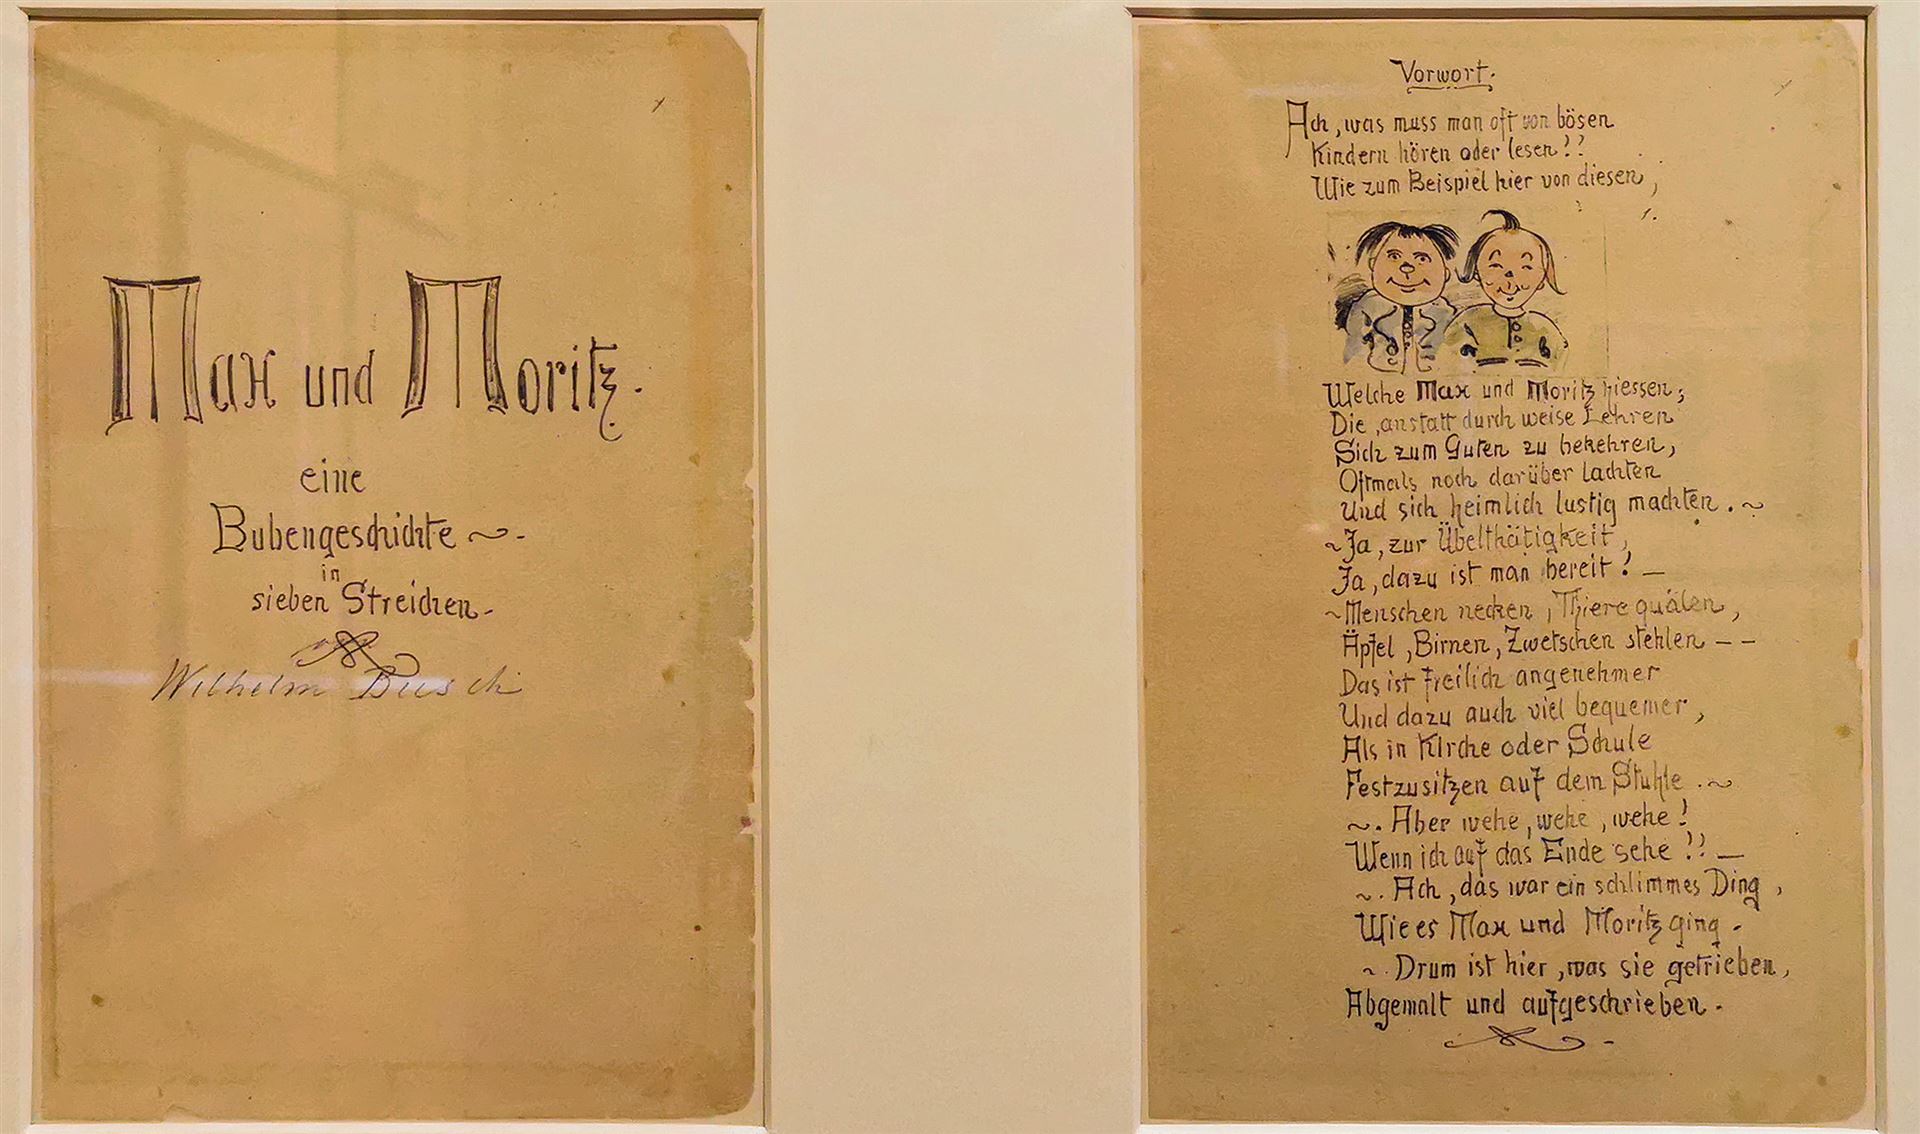 Max und Moritz.
eine
Bubengeschichte ~-
in
sieben Streichen-
Wilhelm Busch
Vorwort.
Ach, was muss man oft von bösen
Kindern hören oder lesen!?
Wie zum Beispiel hier von diesen,
Welche Max und Moritz hiessen;
Die, anstatt durch weise Lehren
Sich zum Guten zu bekehren,
Oftmals noch darüber lachten
Und sich heimlich lustig machten. ~
~Ja, zur Übelthätigkeit,
Ja, dazu ist man bereit! —
~Menschen necken, Thiere quälen,
Äpfel, Birnen, Zwetschen stehlen — —
Das ist freilich angenehmer
Und dazu auch viel bequemer,
Als in Kirche oder Schule
Festzusitzen auf dem Stuhle. ~
~. Aber wehe, wehe, wehe!
Wenn ich auf das Ende sehe!? —
~. Ach, das war ein schlimmes Ding,
Wie es Max und Moritz ging -
~. Drum ist hier, was sie getrieben,
Abgemalt und aufgeschrieben.